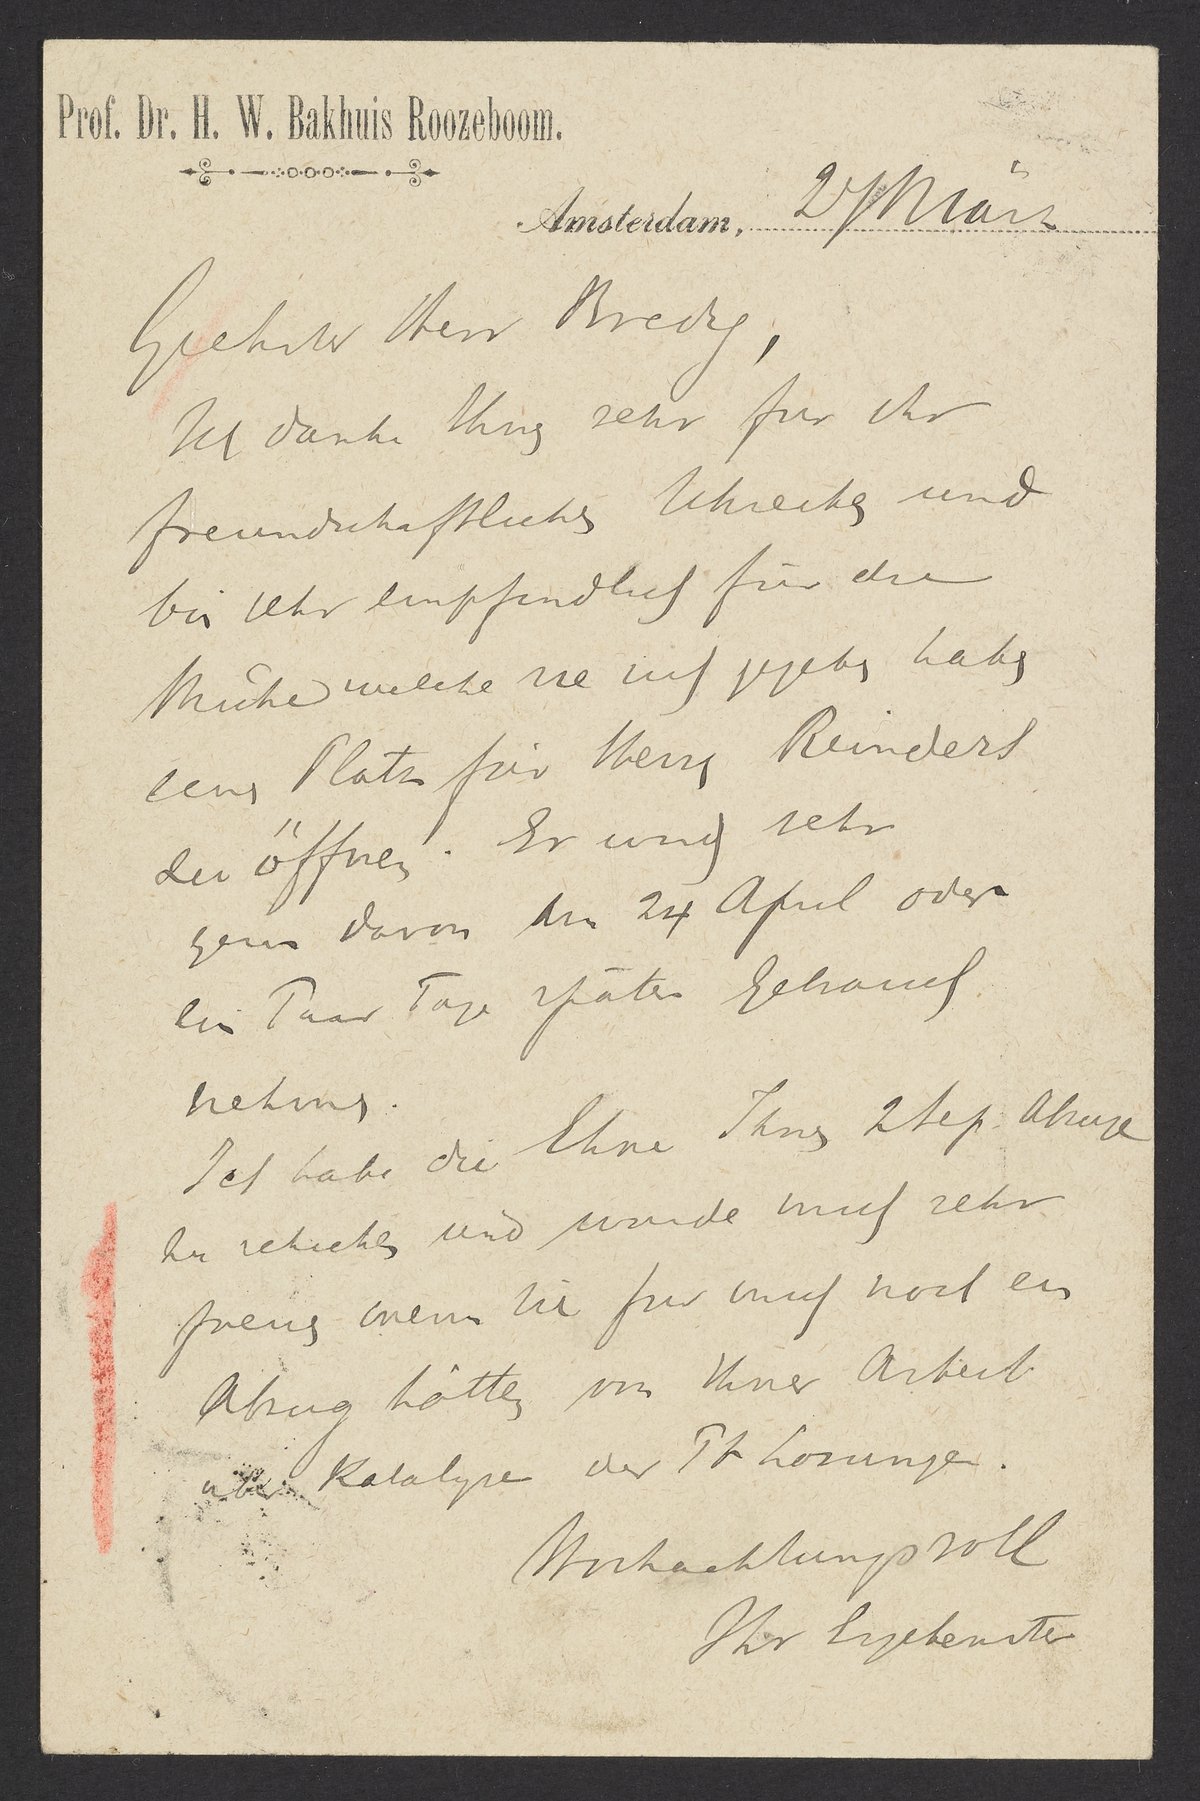 Prof. Dr. H. W. Bakhuis Roozeboom.
Amsterdam, 27 März
Geehrter Herr Bredig,
Ich danke Ihnen sehr für Ihr
freundschaftliches Schreiben und
bin sehr empfindlich für die
Mühe welche sie sich gegeben haben
einen Platz für Herrn Reinders
zu öffnen. Er wird sehr
gern davon den 24 April oder
ein Paar Tage später Gebrauch
nehmen.
Ich habe die Ehre Ihnen 2 Sep. Abzuge
zu schicken und wurde mich sehr
freuen wenn sie fur mich noch ein
Abzug hätten von Ihrer Arbeit
über Katalyse der Pt Losungen.
Hochachtungsvoll
Ihr Ergebenster